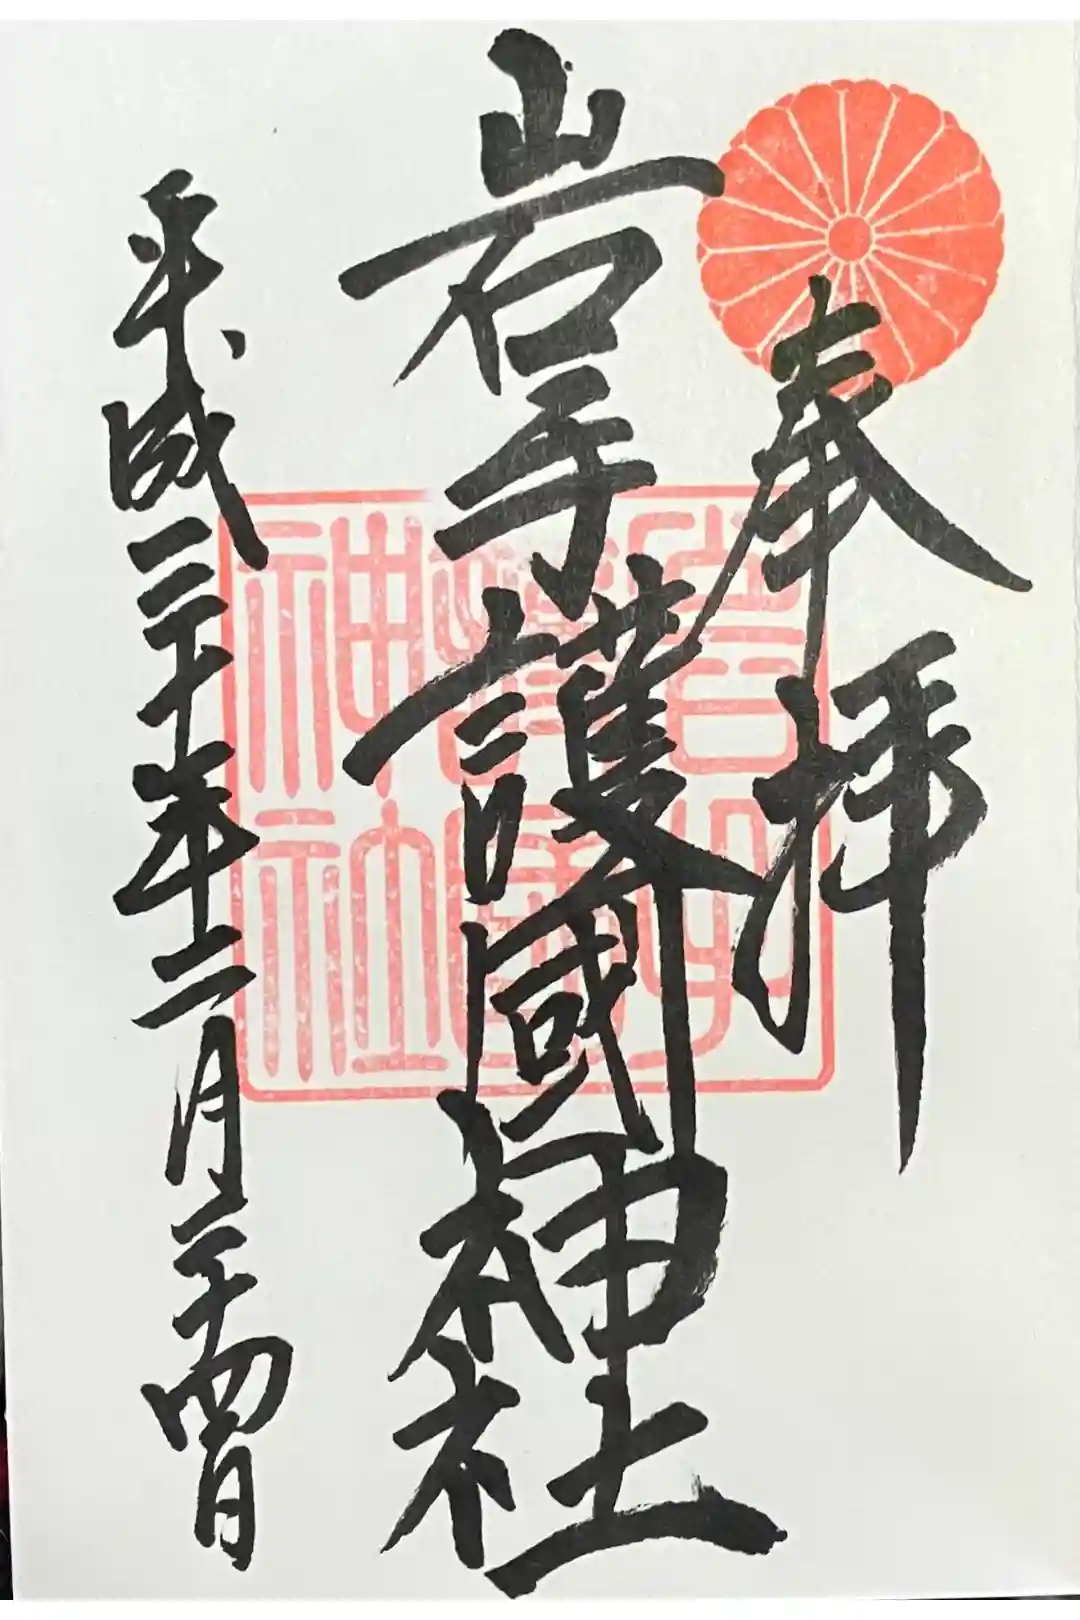 奉拝
岩手護國神社
平成三十年十二月二十四日
岩手
護國
神社